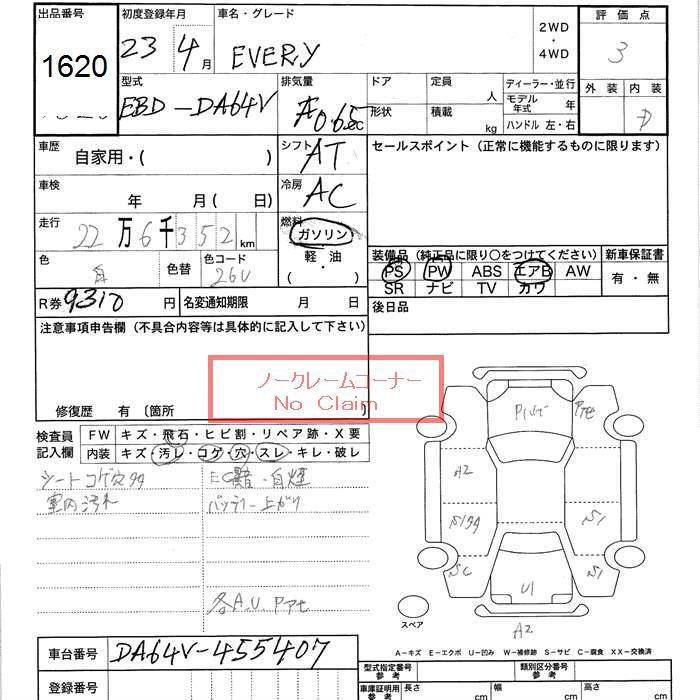 出品番号 初度登録年月 車名・グレード 2WD・4WD 評価点
1620 23 4月 EVERY 3
型式 排気量 ドア 定員 人 ディーラー・並行 外装 内装
EBD-DA64V 0.65 cc 形状 積載 kg モデル年式 年 D
ハンドル 左・右
車歴 自家用・( ) シフト AT セールスポイント(正常に機能するものに限ります)
車検 年 月( 日) 冷房 AC
走行 22万6千352km 燃料 ガソリン
軽油
( )
色 白 色替 色コード 26U
装備品(純正品に限り○をつけてください) 新車保証書
PS PW ABS エアB AW 有・無
SR ナビ TV カワ
R券 9310円 名変通知期限 月 日 後日品
注意事項申告欄(不具合内容等は具体的に記入して下さい)
ノークレームコーナー
No Claim
修復歴 有〔箇所 〕
検査員記入欄 FW キズ・飛石・ヒビ割・リペア跡・X要
内装 キズ・汚レ・コゲ・穴・スレ・キレ・破レ
シートコゲ穴 白煙
室内汚れ バッテリー上がり
各A.U Pアセ
Pアセ
A2
S1
SC S1
U1
スペア A2
A-キズ E-エクボ U-凹み W-補修跡 S-サビ C-腐食 XX-交換済
車台番号 DA64V-455407
登録番号
型式指定番号 類別区分番号
車庫証明用 長さ cm 幅 cm 高さ cm